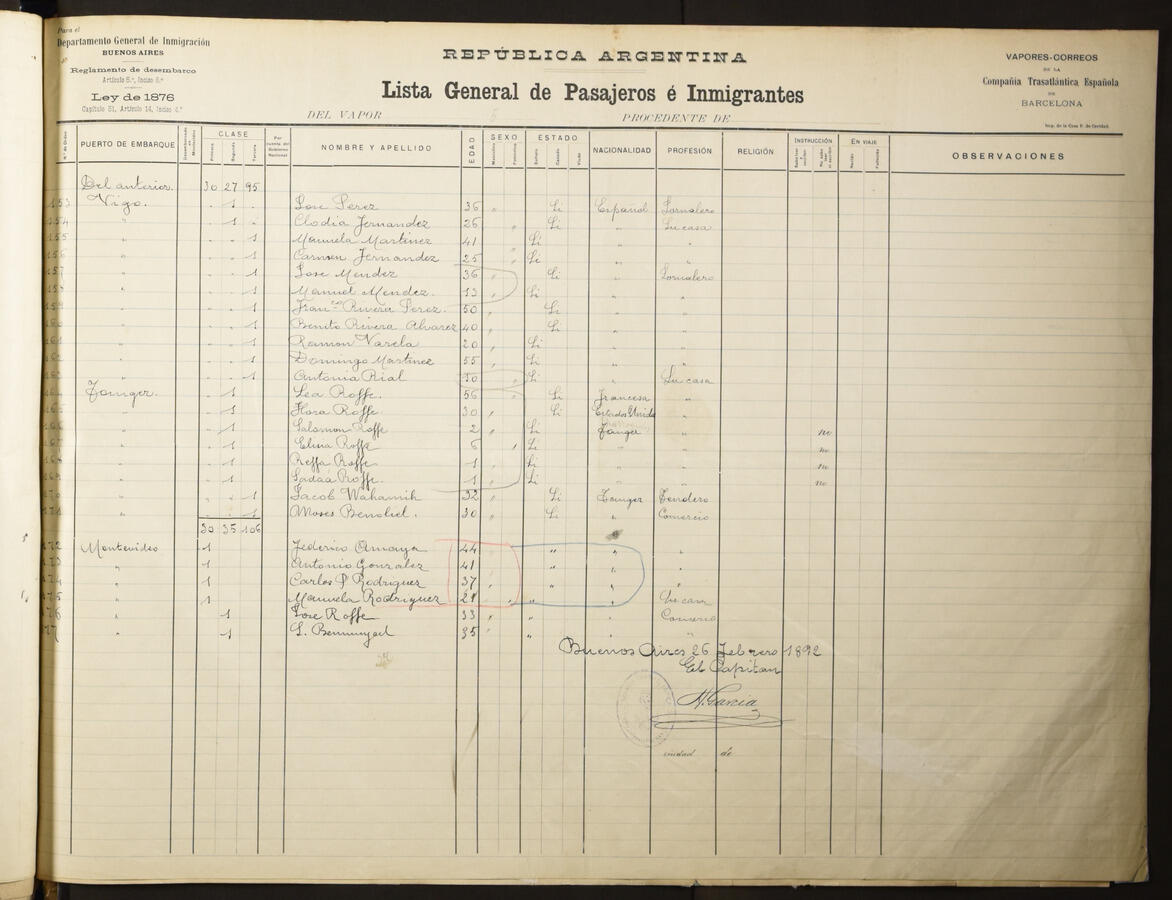 Para el
Departamento General de Inmigración
BUENOS AIRES
Reglamento de desembarco
Artículo 5.º, Inciso 6.º
Ley de 1876
Capítulo 31, Artículo 14, Inciso 4.º
REPÚBLICA ARGENTINA
Lista General de Pasajeros é Inmigrantes
DEL VAPOR PROCEDENTE DE
VAPORES-CORREOS
DE LA
Compañía Trasatlántica Española
DE
BARCELONA
Imp. de la Casa P. de Caridad.
N.º de Orden PUERTO DE EMBARQUE CLASE Primera Segunda Tercera Por cuenta del Gobierno Nacional NOMBRE Y APELLIDO EDAD SEXO Masculino Femenino ESTADO Soltero Casado Viudo NACIONALIDAD PROFESIÓN RELIGIÓN INSTRUCCIÓN EN VIAJE Nacido Fallecido OBSERVACIONES
Del anterior. 30 27 95
153 Vigo. 1 Jose Perez 36 " Si Español Jornalero
154 " 1 Clodia Fernandez 26 " Si " Su casa
155 " 1 Manuela Martinez 41 " Si " "
156 " 1 Carmen Fernandez 25 " Si "
157 " 1 Jose Mendez 36 " Si " Jornalero
158 " 1 Manuel Mendez. 13 " Si " "
159 " 1 Fran.co Rivera Perez. 50 " Si " "
160 " 1 Benito Rivera Alvarez 40 " Si " "
161 " 1 Ramon Varela 20 " Si " "
162 " 1 Domingo Martinez 55 " Si " "
" 1 Antonia Rial 30 " Si " Su casa
Tanger. 1 Lea Roffe. 56 " Si Francesa "
165 " 1 Flora Roffe 30 " Si Estados Unido "
" 1 Salomon Roffe 2 " Si Tanger " no
" 1 Elina Roffe 6 " Si " " no
" 1 Reffa Roffe 1 " Si " " no
169 " 1 Sadaa Roffe 1 " Si " " no
170 " 1 Jacob Wahamik 32 " Si Tanger Tendero
171 " 1 Moses Benoliel. 30 " Si " Comercio
30 35 106
172 Montevideo 1 Federico Amaya 44 " " " "
173 " 1 Antonio Gonzalez 41 " " "
174 " 1 Carlos Rodriguez 37 " " " "
175 " 1 Manuela Rodriguez 21 " " " Su casa
176 " 1 Jose Roffe 33 " " " Comercio
177 " 1 35 " " " "
Buenos Aires 26 Febrero 1892
El Capitan
A. Garcia
ciudad de